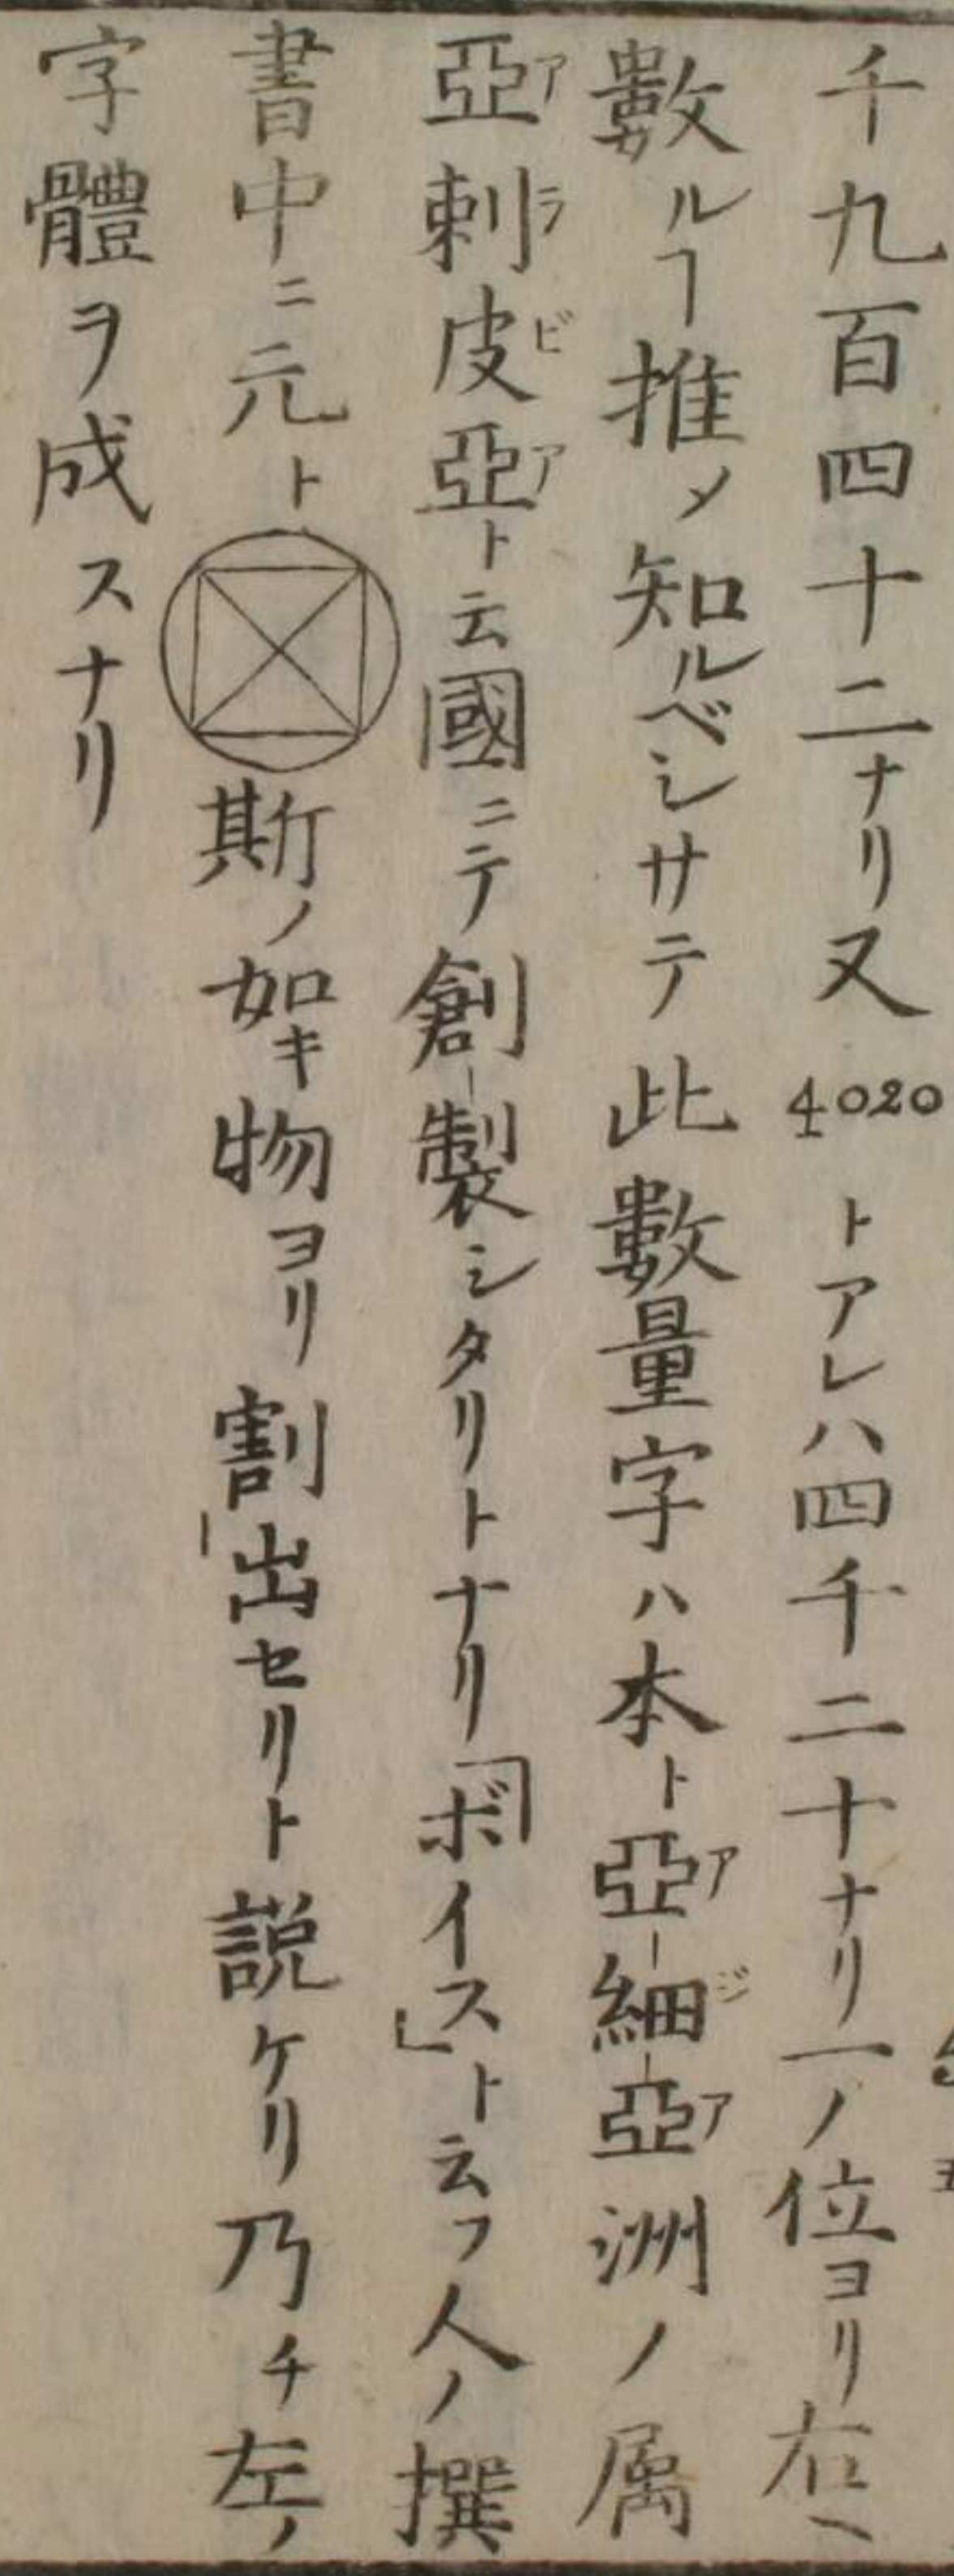 千九百四十二ナリ又4020トアレハ四千二十ナリ一ノ位ヨリ右ヘ
數ルヿ推メ知ルベシサテ此數量字ハ本ト亞細亞洲ノ属
亞剌皮亞ト云國ニテ創製シタリトナリ「ボイス」ト云フ人ノ撰
書中ニ元ト斯ノ如キ物ヨリ割出セリト説ケリ乃チ左ノ
字體ヲ成スナリ
アジア
アラビア